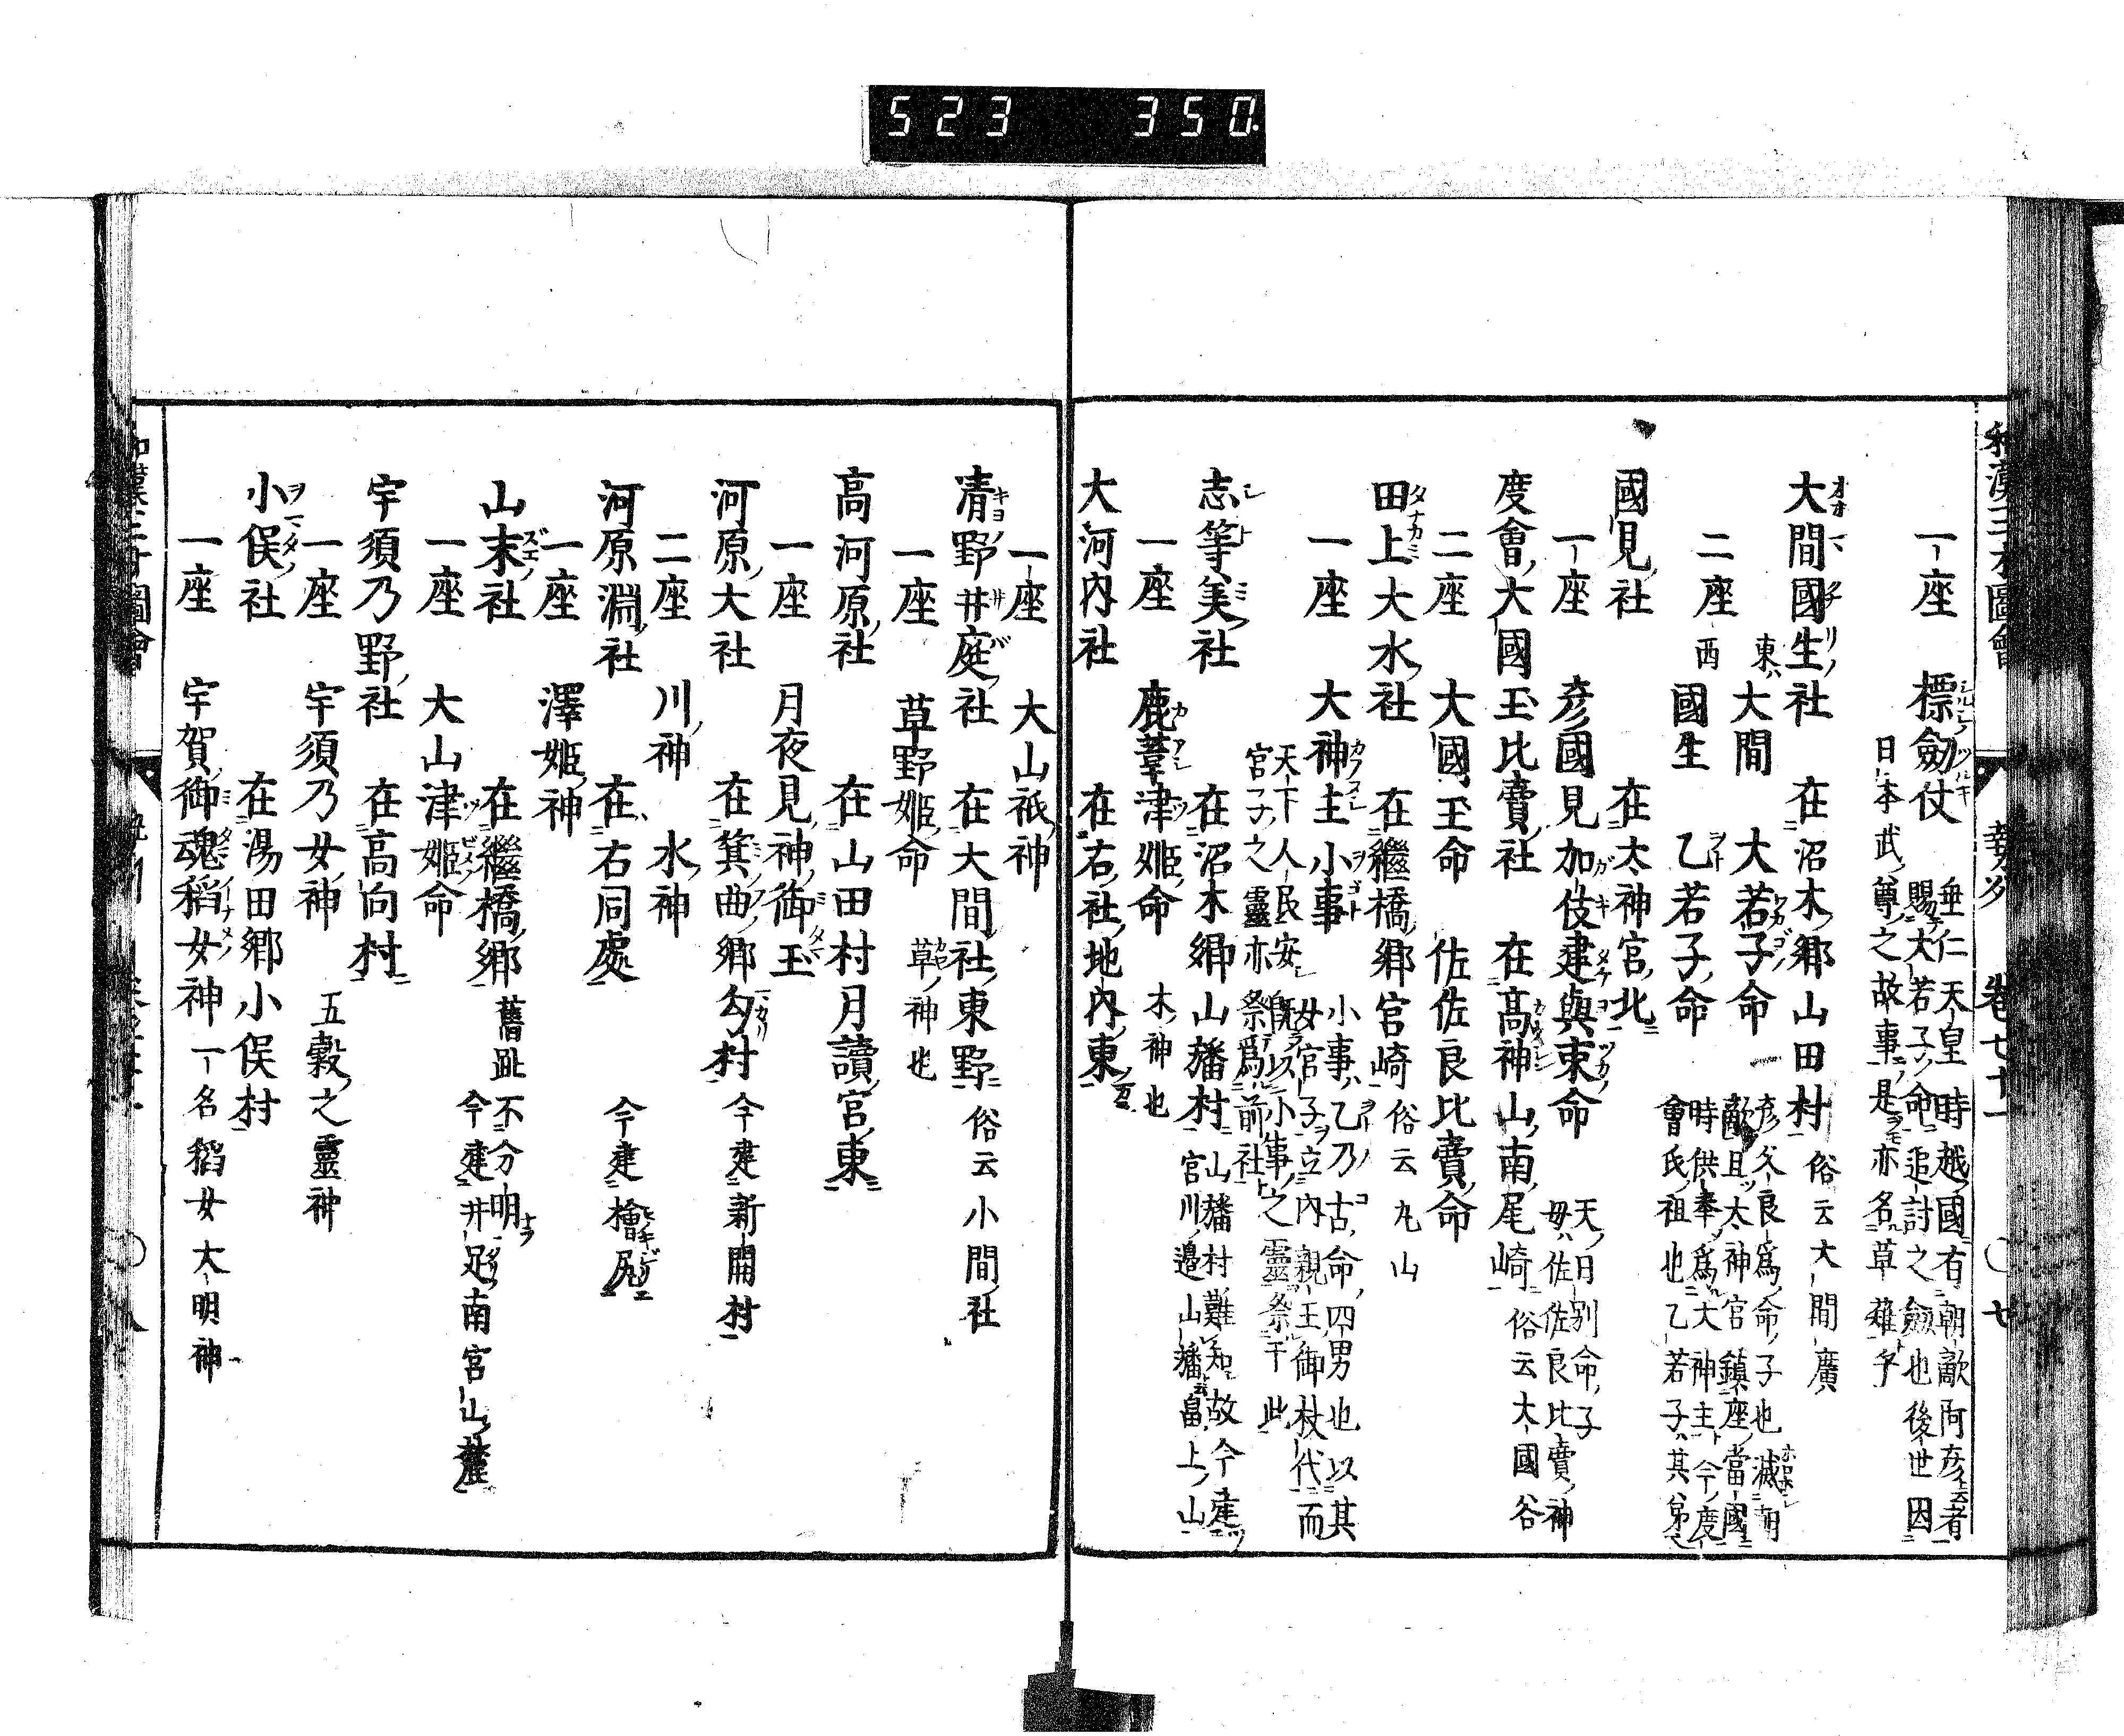 523 350
和漢三才圖會 勢州 卷七十一 ○七
一座 標劔仗 垂仁天皇時越國有朝敵阿彦云者
賜大若子命追討之劔也後世因
日本武尊之故事是亦名草薙乎
大間國生社 在沼木郷山田村 俗云大間廣
二座 東大間 大若子命 一
西國生 乙若子命
彦久良爲命子也滅朝
敵且太神官鎮座當國
時供奉爲大神主今度
會氏祖也乙若子其弟
國見社 在太神宮北
一座 彦國見加伎建與束命 天日別命子
母佐佐良比賣神
度會大國玉比賣社 在高神山南尾崎 俗云大國谷
二座 大國玉命 佐佐良比賣命
田上大水社 在繼橋郷宮崎 俗云丸山
一座 大神主小事 小事乙乃古命四男也以其
女官子立内親王御杖代而
天下人民安 既以小事之靈祭于此
宮子之靈亦祭爲前社
志等美社 在沼木郷山旛村 山旛村難知故今建
宮川邉山旛畠上山
一座 鹿葦津姫命 木神也
大河内社 在右社地内東
一座 大山祇神
清野井庭社 在大間社東野 俗云小間社
一座 草野姫命 草神也
高河原社 在山田村月讀宮東
一座 月夜見神御玉
河原大社 在箕曲郷勾村 今建新開村
二座 川神 水神
河原淵社 在右同處 今建檜尻
一座 澤姫神
山末社 在繼橋郷 舊趾不分明
今建井足南宮山麓
一座 大山津姫命
宇須乃野社 在高向村
一座 宇須乃女神 五穀之靈神
小俣社 在湯田郷小俣村
一座 宇賀御魂稻女神 一名稻女大明神